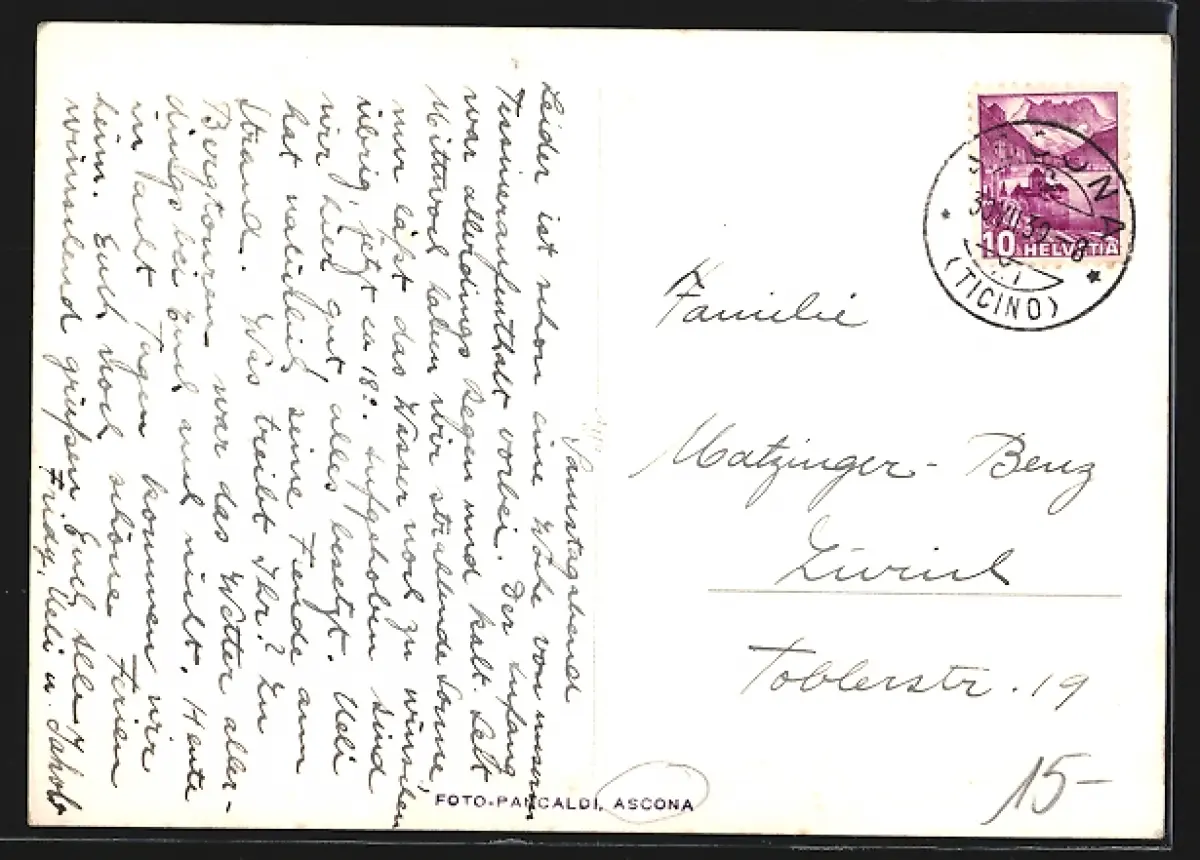 Samstagabend
Leider ist schon eine Woche von unserm
Tessineraufenthalt vorbei. Der Anfang
war allerdings Regen und kalt. Seit
Mittwoch haben wir strahlende Sonne,
nur läßt das Wasser noch zu wünschen
übrig, jetzt ca 18°. Aufgehoben sind
wir hier gut, alles besetzt. Ueli
hat natürlich seine Freude am
Strand. Was treibt Ihr? Zu
Bergtouren war das Wetter aller-
dings bei Euch auch nicht. Heute
in acht Tagen kommen wir
heim. Euch noch schöne Ferien
wünschend grüßen Euch Alle
Fridy, Ueli u. Jakob
Familie
Matzinger-Benz
Zürich
Toblerstr. 19
15-
10 HELVETIA
ASCONA
(TICINO)
FOTO-PANCALDI, ASCONA